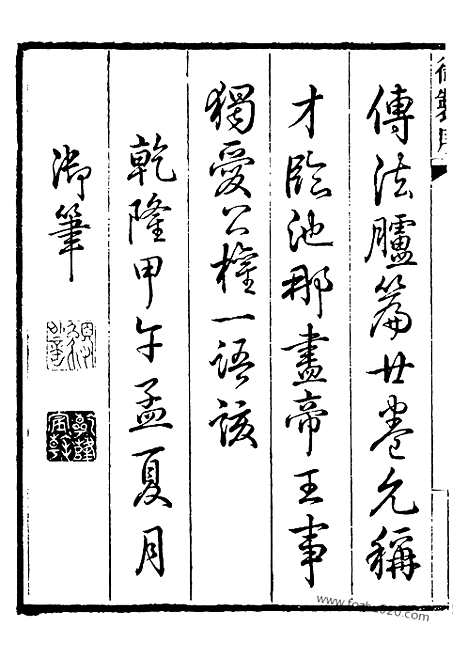 傳法臚篇廿卷允稱
才臨池那盡帝王事
獨愛公權一語該
乾隆甲午孟夏月
御筆
乾隆宸翰
www.fozhu920.com